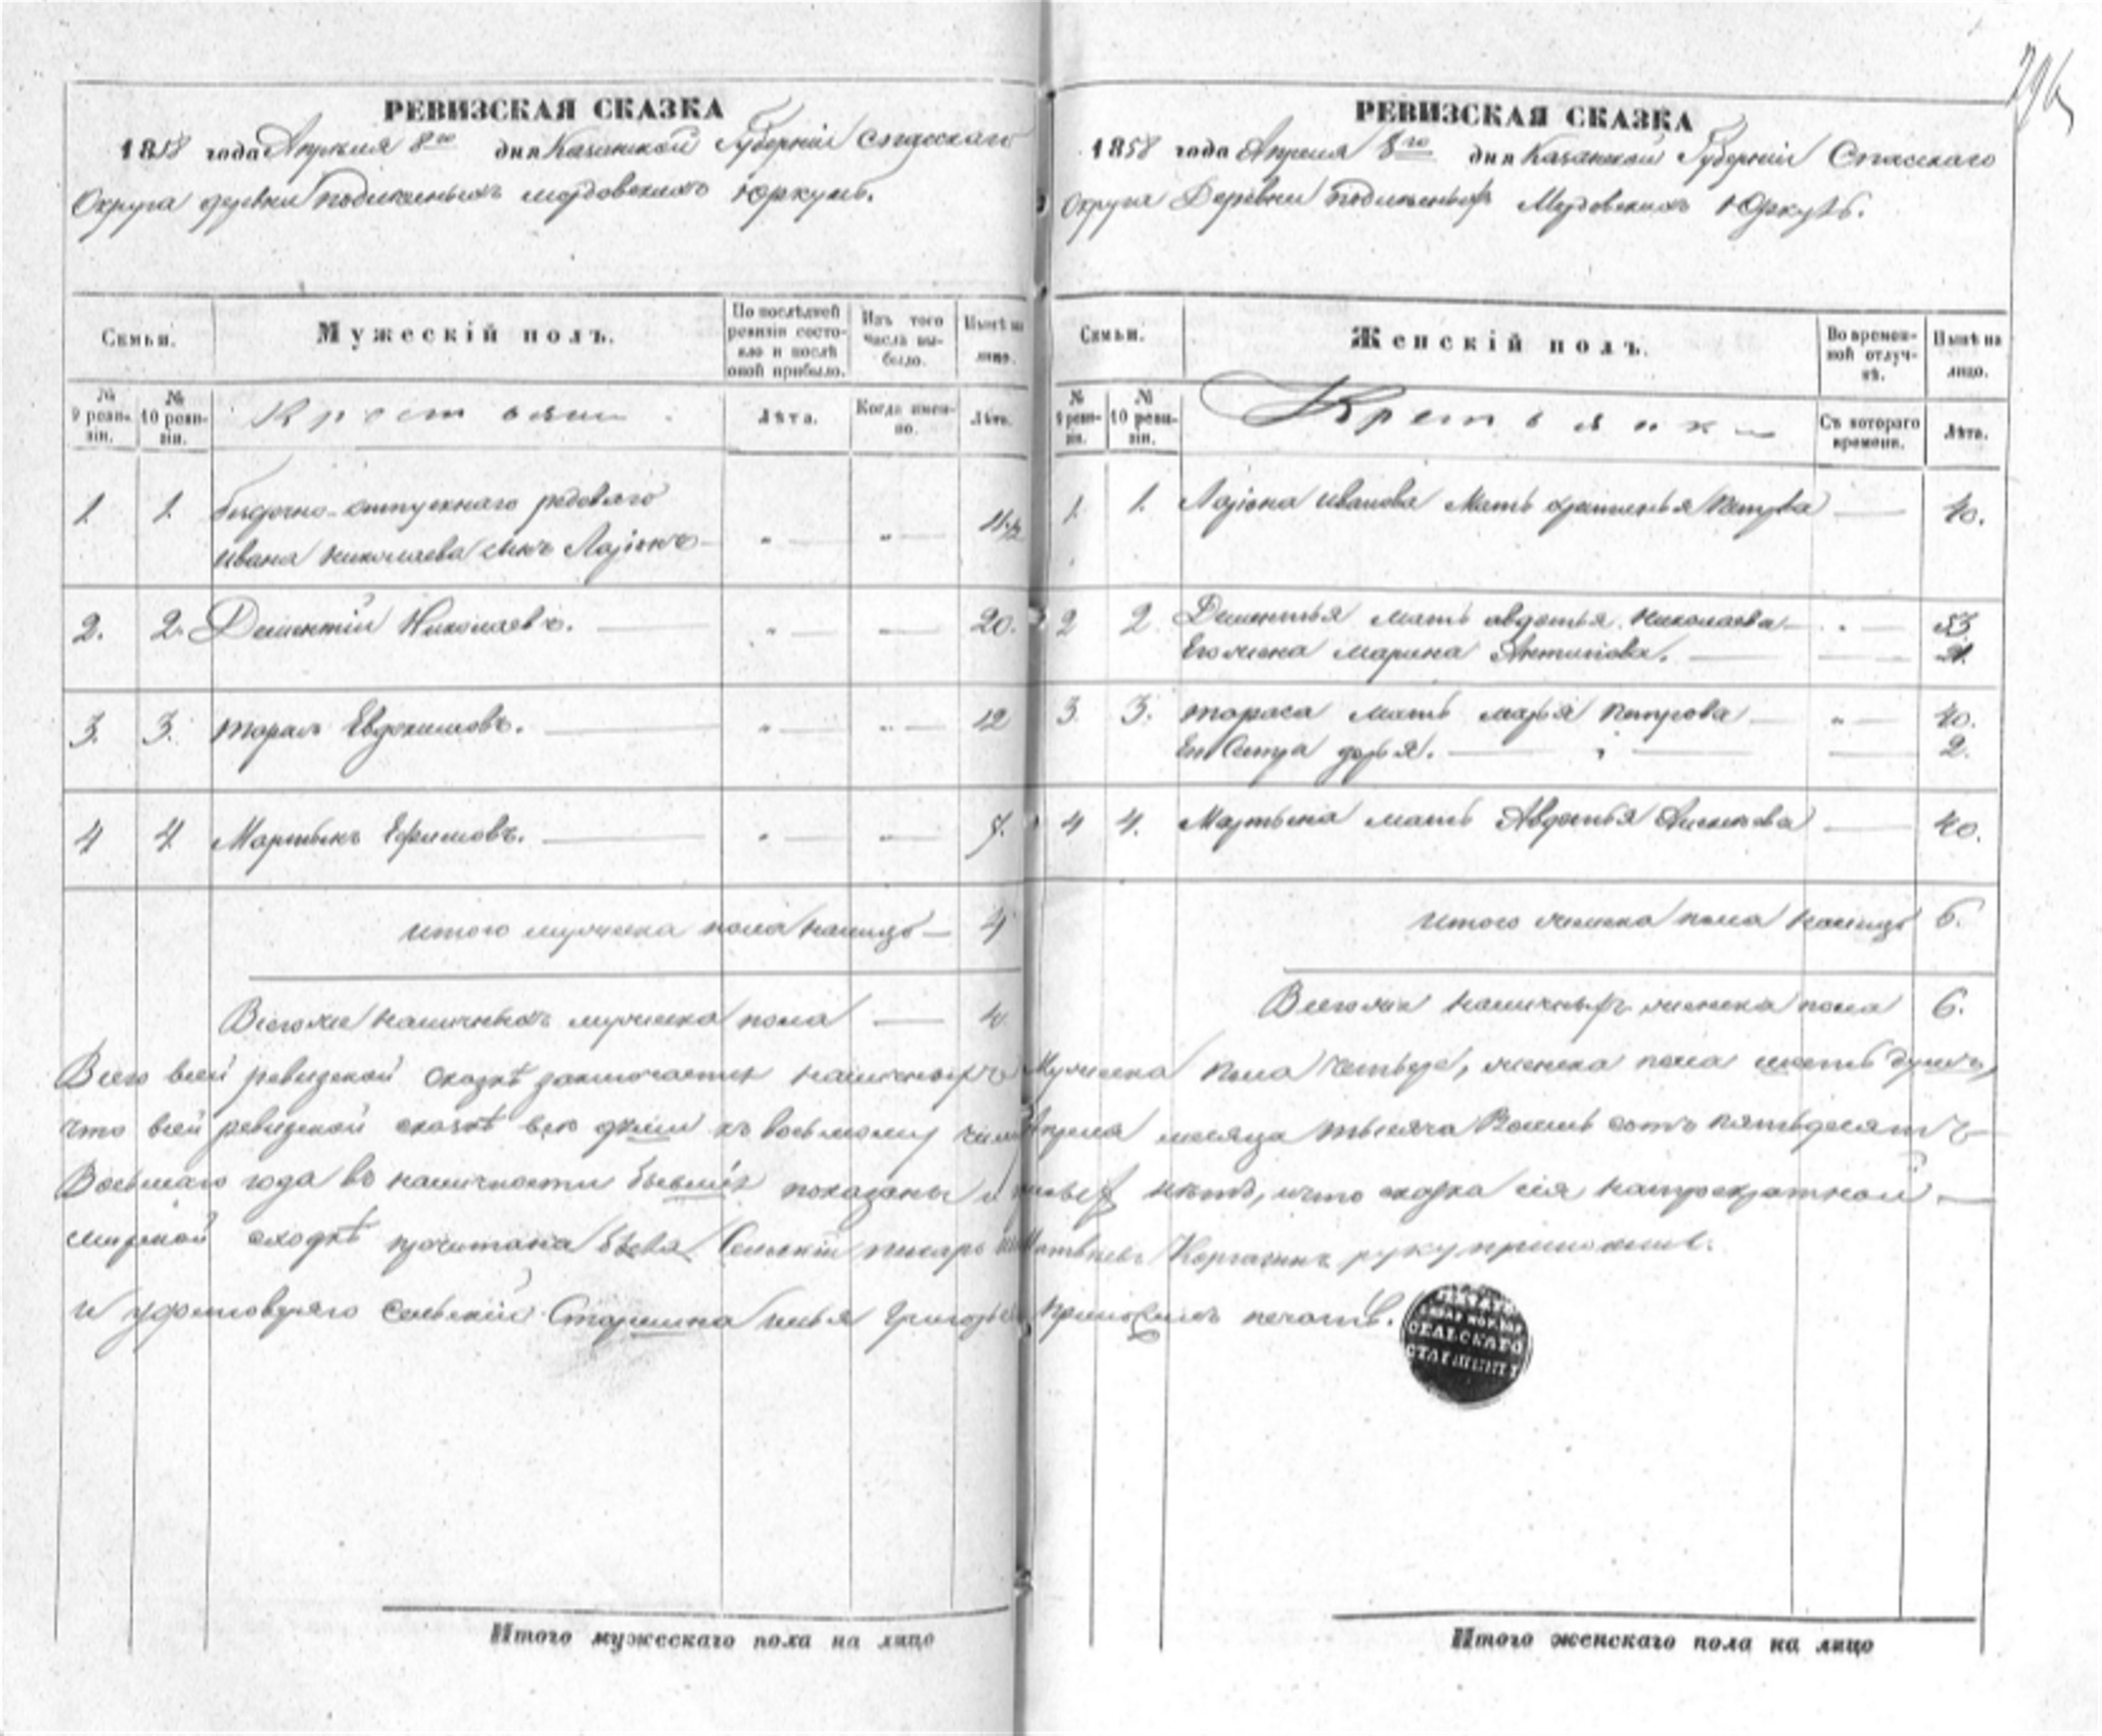 296
РЕВИЗСКАЯ СКАЗКА
1858 года Апреля 8го дня Казанской Губернии Спасскаго
Округа деревни подлесныхъ мордовскихъ Юркуль.
Семьи.
Мужескій полъ.
По послѣдней ревизіи состояло и послѣ оной прибыло.
Изъ того числа выбыло.
Нынѣ на лицо.
№ 9 ревизіи.
№ 10 ревизіи.
Крестьяни
Лѣта.
Когда именно.
Лѣта.
1. 1. рядоваго
Ивана Николаева сынъ Ларіонъ
2. 2. Дементій Николаевъ. 20.
3. 3. Тарасъ Евдокимовъ. 12
4 4. Мартынъ Ефимовъ. 7.
Итого мужеска пола налицо 4
Всего же наличныхъ мужеска пола 4
РЕВИЗСКАЯ СКАЗКА
1858 года Апреля 8го дня Казанской Губерніи Спасскаго
Округа Деревни подлесныхъ Мордовскихъ Юркуль.
Семьи.
Женскій полъ.
Во временной отлучкѣ.
Нынѣ на лицо.
№ 9 ревизіи.
№ 10 ревизіи.
Крестьянки
Съ котораго времени.
Лѣта.
1. 1. Ларіона Иванова Мать Петрова 40.
2 2 Дементья мать авдотья Николаева 53.
Его жена Марина Антипова.
3 3. Тараса мать марья Петрова 40.
Сестра дарья. 2.
4 4. Мартына мать Авдотья 40.
Итого женска пола налицо 6.
Всего же наличныхъ женска пола 6.
Всего всей ревизской сказкѣ заключается наличныхъ Мужеска пола четыре, женска пола шесть душъ,
что всей ревизской сказкѣ все души къ восьмому числу Апреля месяца тысяча Восемь сотъ пятьдесятъ
Восьмаго года въ наличности бывшіе показаны и нетъ, и что сказка сія на
мирской сходкѣ прочитана была Сельскій писарь Матвеевъ руку приложилъ.
и Сельскій Старшина Илья Григорьевъ приложилъ печать.
СЕЛЬСКАГО
СТАРШИНЫ
Итого мужескаго пола на лицо
Итого женскаго пола на лицо